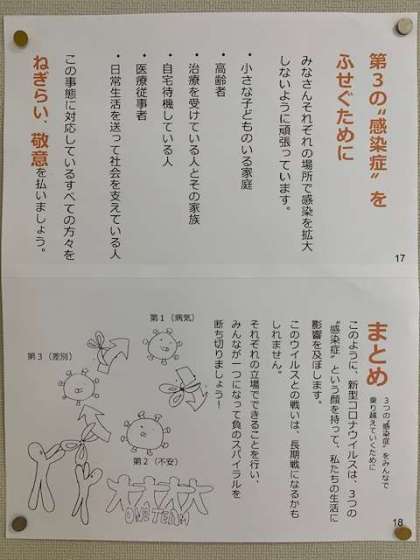 第3の“感染症”を
ふせぐために
みなさんそれぞれの場所で感染を拡大
しないように頑張っています。
・小さな子どものいる家庭
・高齢者
・治療を受けている人とその家族
・自宅待機している人
・医療従事者
・日常生活を送って社会を支えている人
この事態に対応しているすべての方々を
ねぎらい、敬意を払いましょう。
17
まとめ
3つの“感染症”をみんなで
乗り越えていくために
このように、新型コロナウイルスは、3つの
“感染症”という顔を持って、私たちの生活に
影響を及ぼします。
このウイルスとの戦いは、長期戦になるかも
しれません。
それぞれの立場でできることを行い、
みんなが一つになって負のスパイラルを
断ち切りましょう！
第1（病気）
第3（差別）
第2（不安）
ONE TEAM
18